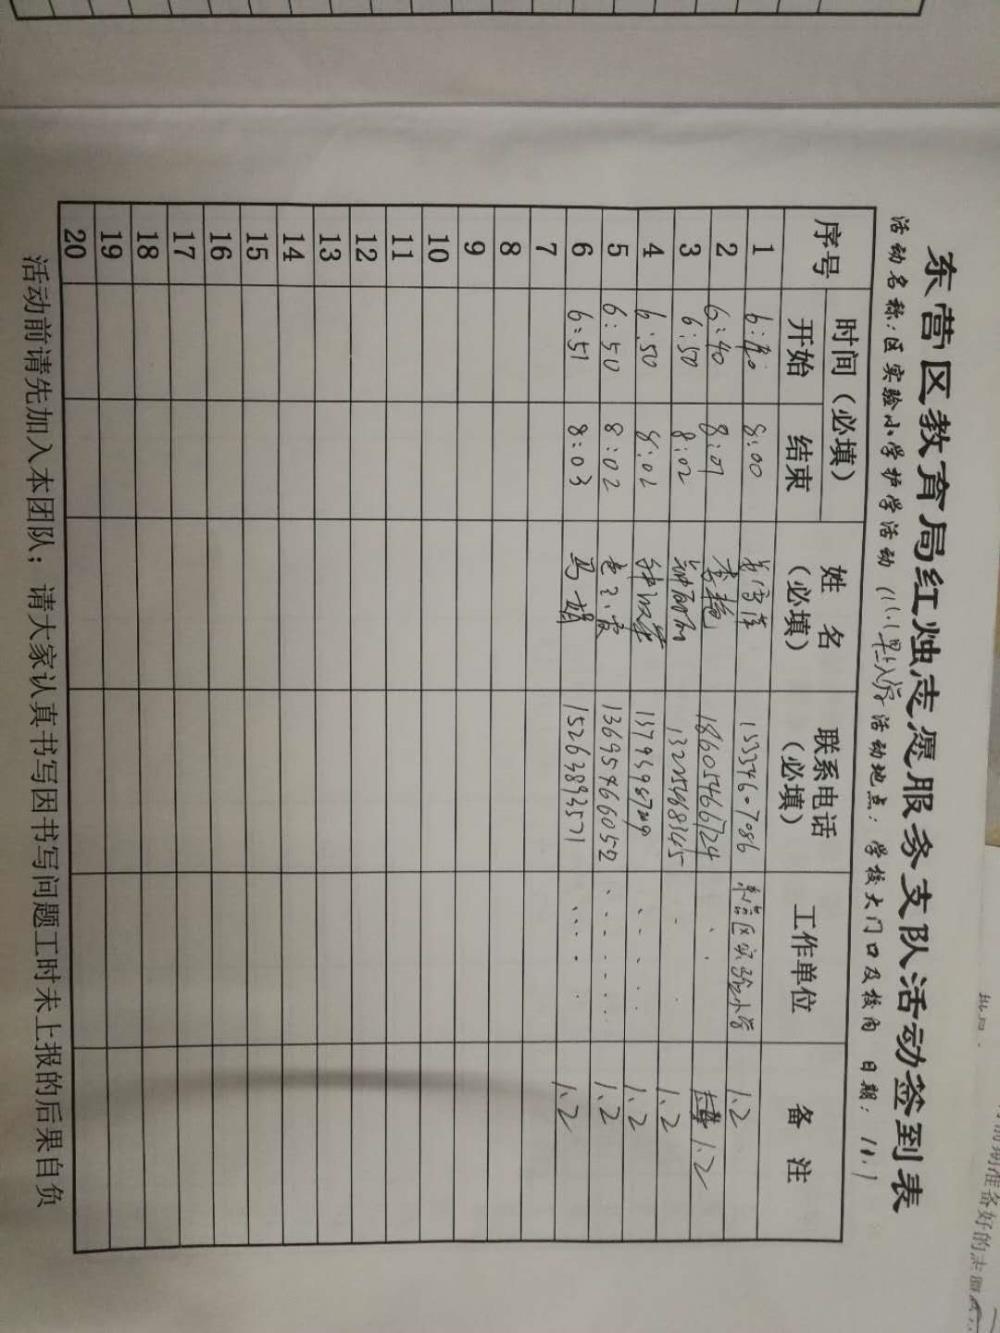 东营区教育局红烛志愿服务支队活动签到表
活动名称:区实验小学护学活动 (11.1早上入学) 活动地点:学校大门口及校内 日期:11.1
序号 时间(必填) 姓名(必填) 联系电话(必填) 工作单位 备注
开始 结束
1 6:40 8:00 15334607086 东营区实验小学 1.2
2 6:40 8:01 李艳 18605466724 〃 1.2
3 6:50 8:02 13225468345 〃 1.2
4 6:50 8:02 〃 1.2
5 6:50 8:02 13695466052 〃 1.2
6 6:51 8:03 马娟 15263893571 〃 1.2
7
8
9
10
11
12
13
14
15
16
17
18
19
20
活动前请先加入本团队;请大家认真书写因书写问题工时未上报的后果自负